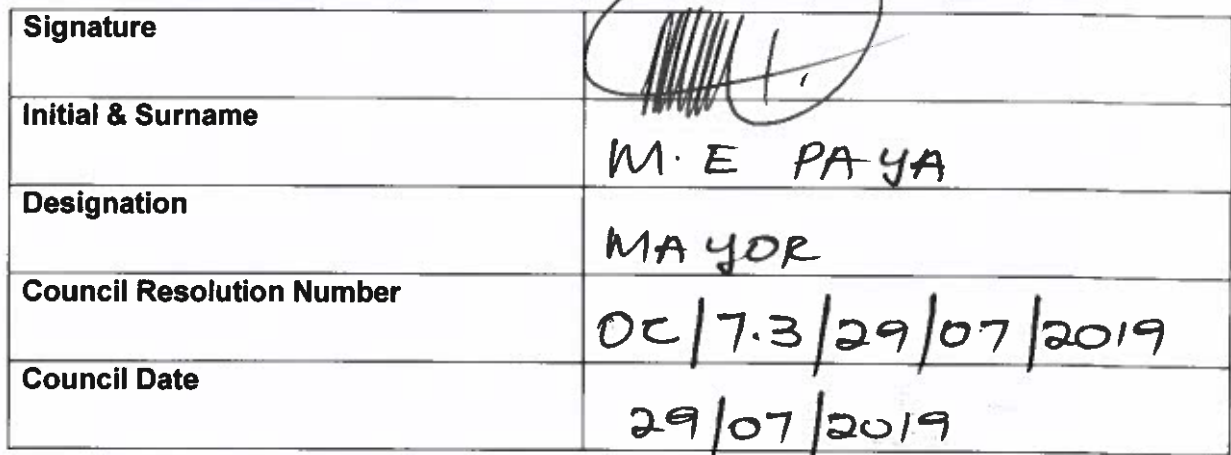 Signature
Initial & Surname
M. E PAYA
Designation
MAYOR
Council Resolution Number
OC/7.3/29/07/2019
Council Date
29/07/2019